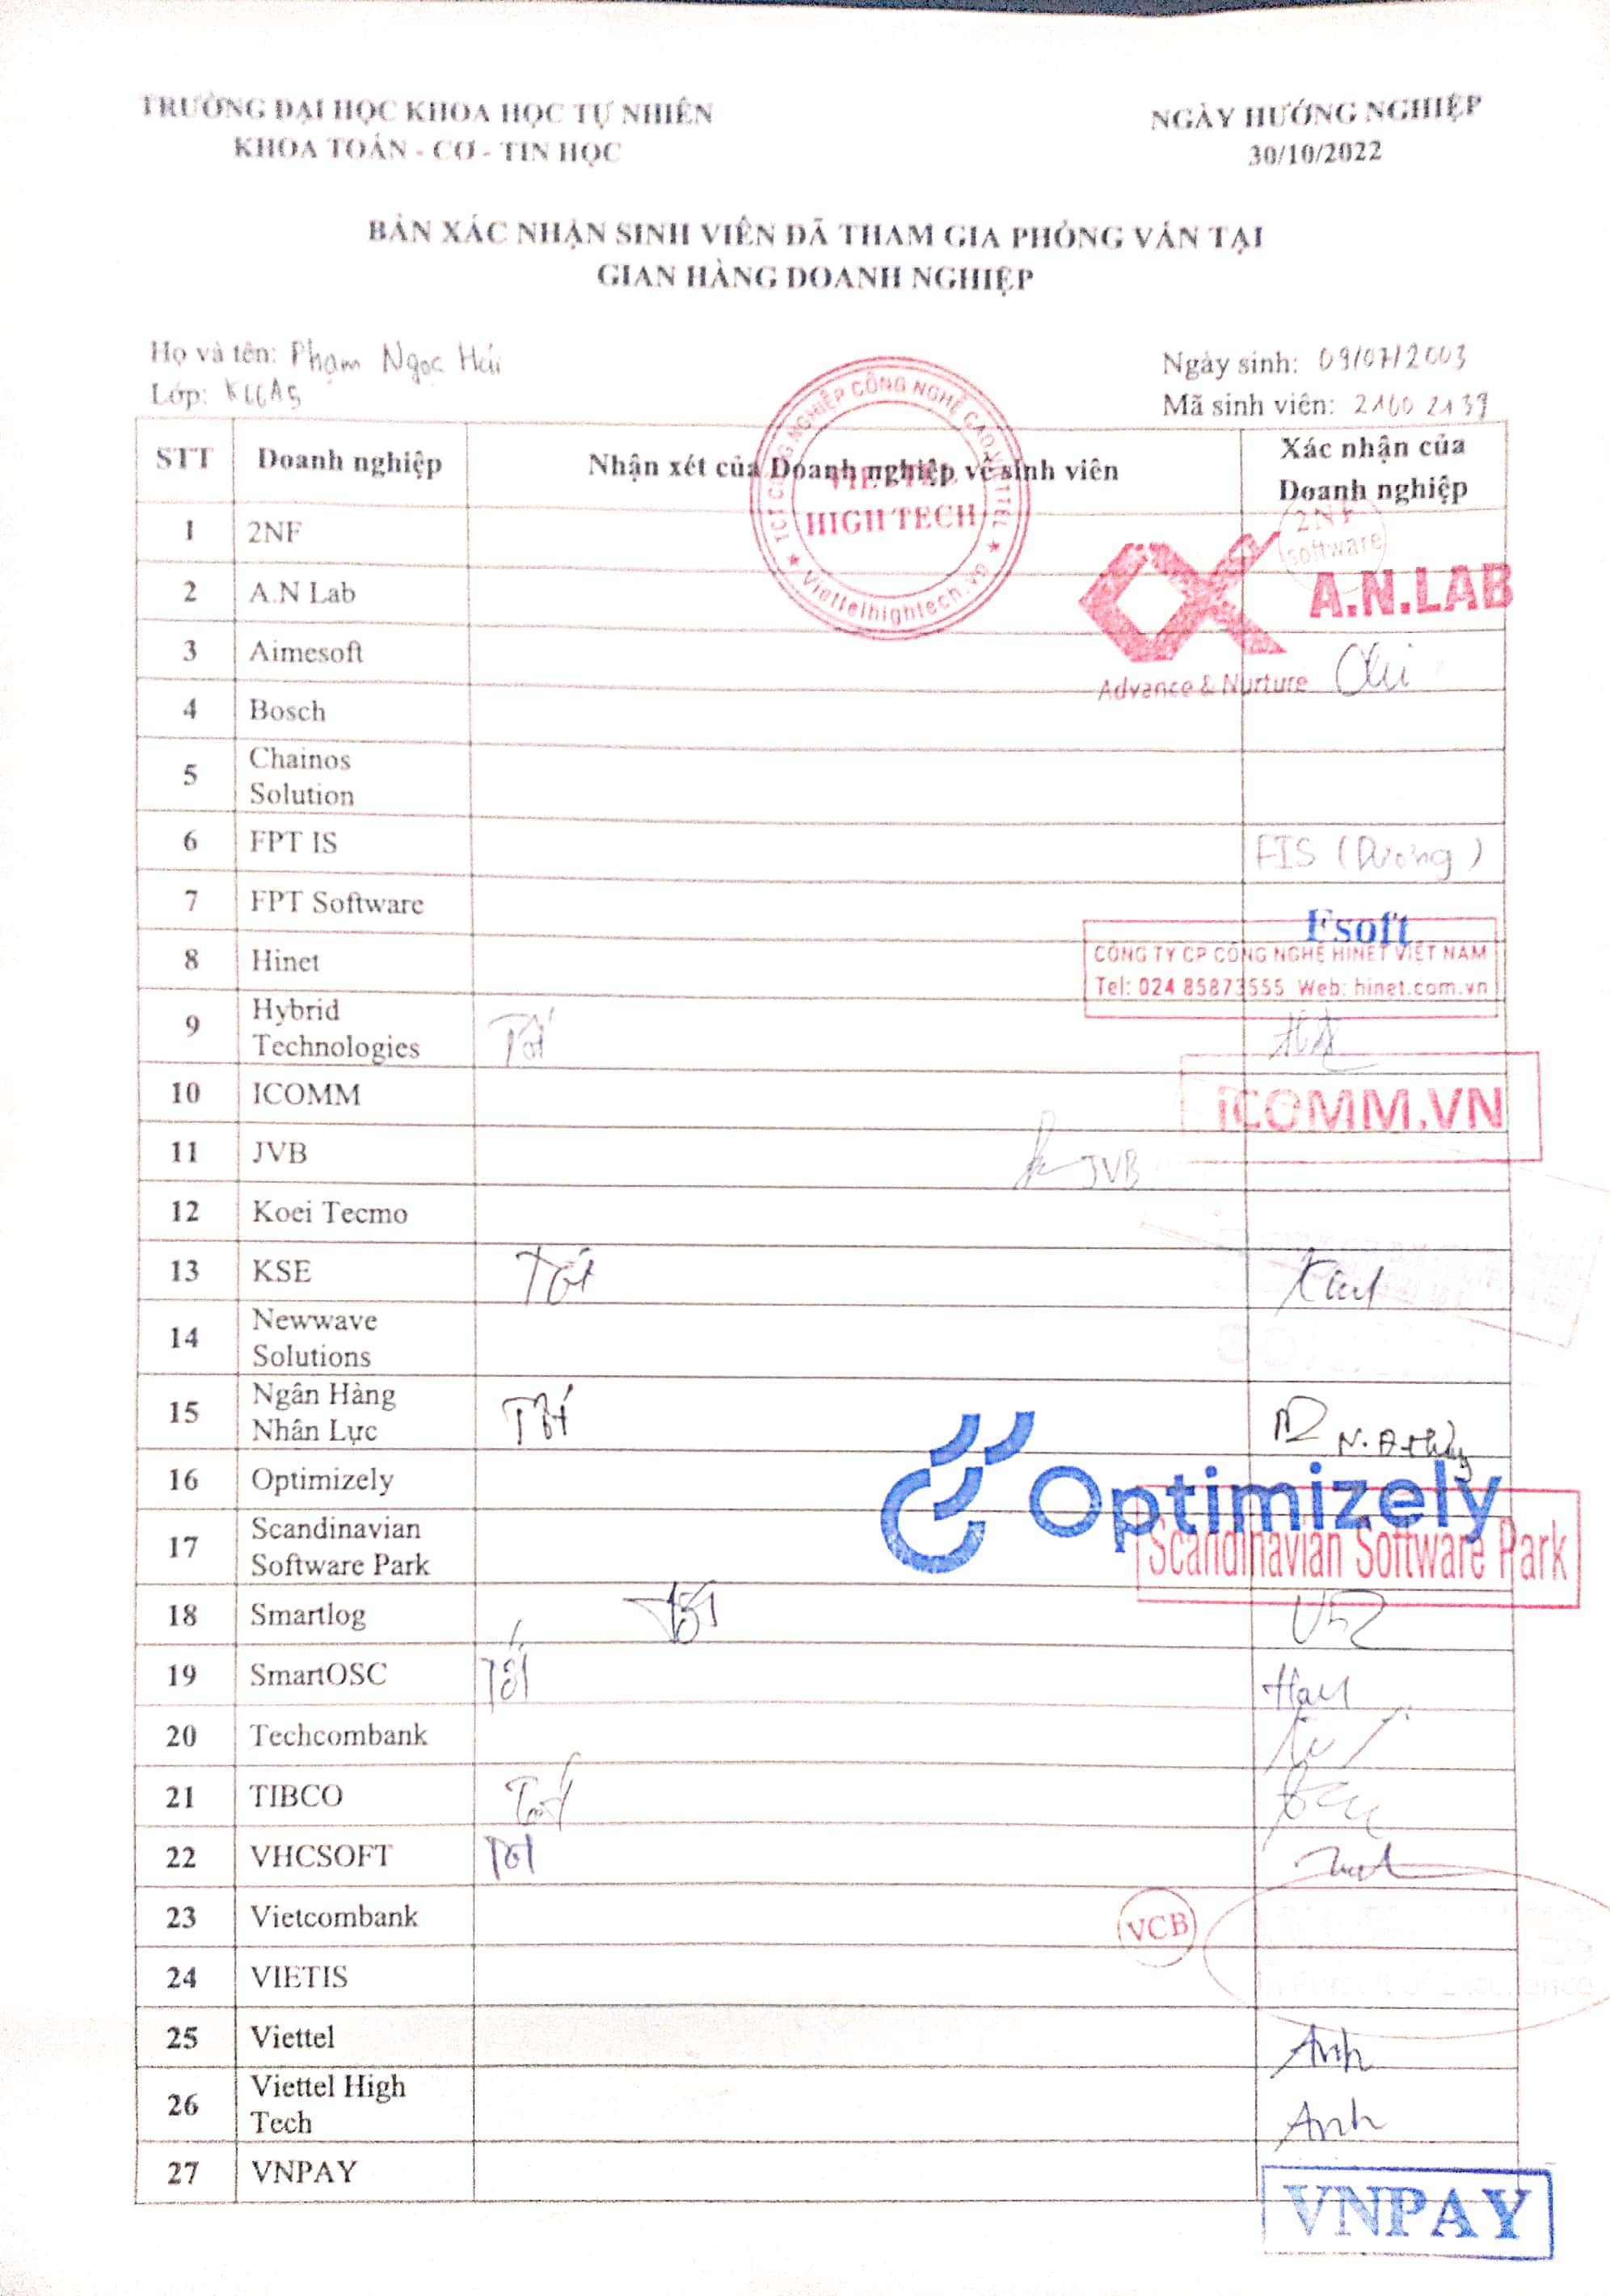 TRƯỜNG ĐẠI HỌC KHOA HỌC TỰ NHIÊN
KHOA TOÁN - CƠ - TIN HỌC
NGÀY HƯỚNG NGHIỆP
30/10/2022
BẢN XÁC NHẬN SINH VIÊN ĐÃ THAM GIA PHỎNG VẤN TẠI
GIAN HÀNG DOANH NGHIỆP
Họ và tên: Phạm Ngọc Hải
Ngày sinh: 09/07/2003
Lớp: K66A5
Mã sinh viên: 21002139
STT Doanh nghiệp Nhận xét của Doanh nghiệp về sinh viên Xác nhận của Doanh nghiệp
TCT CÔNG NGHIỆP CÔNG NGHỆ CAO VIETTEL
VIETTEL
HIGH TECH
Viettelhightech.vn
1 2NF 2NF software
2 A.N Lab A.N.LAB
Advance & Nurture
3 Aimesoft
4 Bosch
5 Chainos Solution
6 FPT IS FIS (Dương)
7 FPT Software Fsoft
8 Hinet CÔNG TY CP CÔNG NGHỆ HINET VIỆT NAM
Tel: 024 85873555 Web: hinet.com.vn
9 Hybrid Technologies Tốt
10 ICOMM iCOMM.VN
11 JVB JVB
12 Koei Tecmo
13 KSE Tốt
14 Newwave Solutions
15 Ngân Hàng Nhân Lực Tốt
16 Optimizely Optimizely
17 Scandinavian Software Park Scandinavian Software Park
18 Smartlog Tốt
19 SmartOSC Tốt
20 Techcombank
21 TIBCO Tốt
22 VHCSOFT Tốt
23 Vietcombank VCB
24 VIETIS
25 Viettel Anh
26 Viettel High Tech Anh
27 VNPAY VNPAY